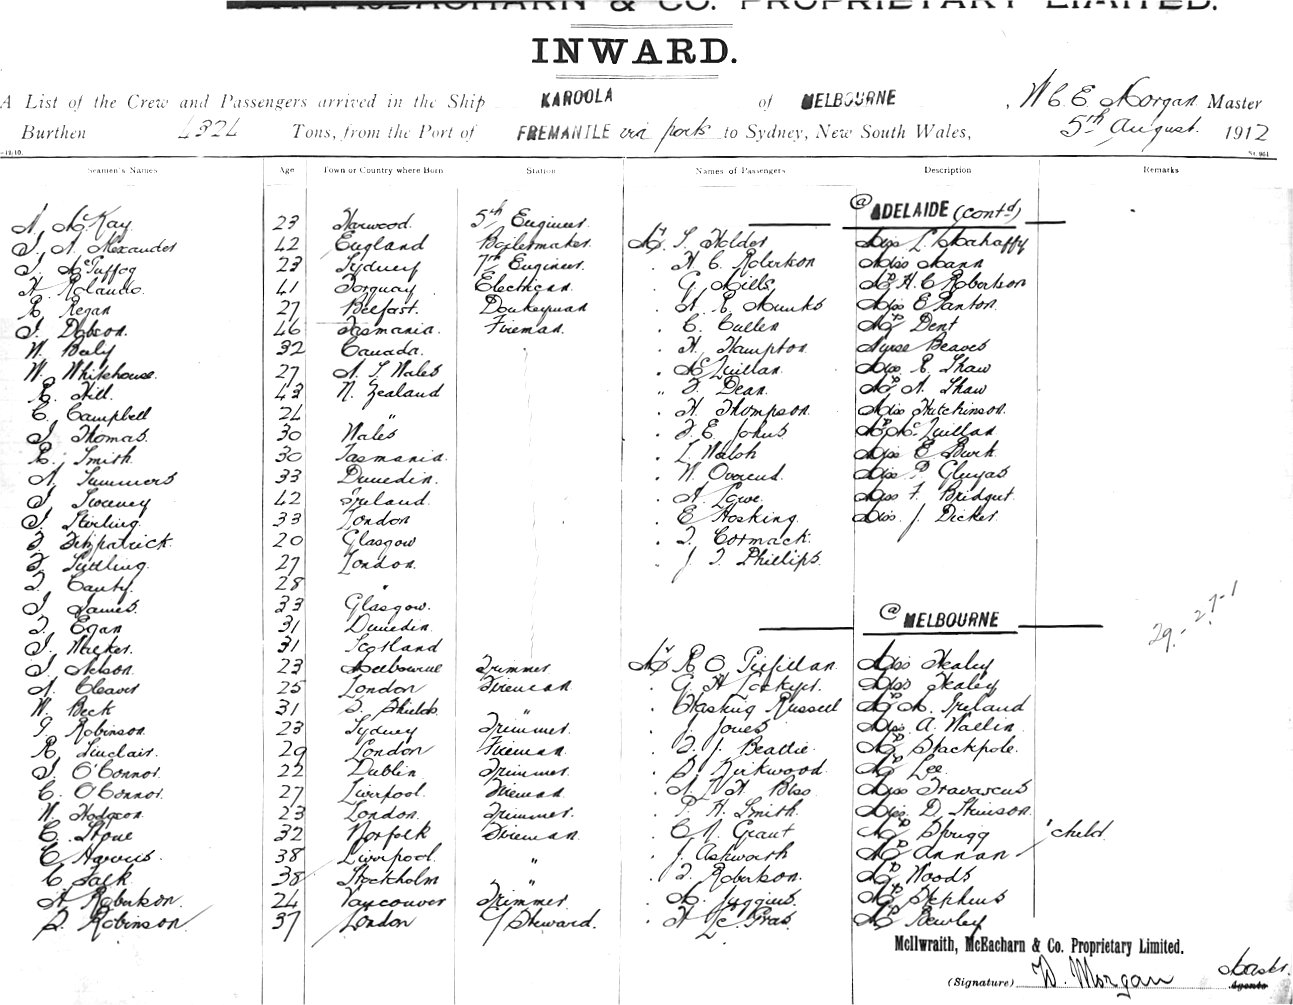 McEACHARN & CO. PROPRIETARY LIMITED.
INWARD.
A List of the Crew and Passengers arrived in the Ship KAROOLA of MELBOURNE, W C E Morgan Master
Burthen 4324 Tons, from the Port of FREMANTLE via ports to Sydney, New South Wales, 5th August 1912
Seamen's Names Age Town or Country where Born Station Names of Passengers Description Remarks
@ ADELAIDE (contd)
N. McKay 23 Harwood 5th Engineer
J. N. Alexander 42 England Boilermaker Mr J. Holder Miss L. Mahaffy
J. McGuffog 23 Sydney 7th Engineer " H. C. Robertson Miss Mann
H. Rolando 41 Torquay Electrican " G. Mills Mrs H. C Robertson
R. Regan 27 Belfast Donkeyman " A. R. Munks Miss E Panton
J. Dobson 46 Tasmania Fireman " C. Cullen Mrs Dent
W. Baly 32 Canada " H. Hampton Nurse Beaves
W. Whitehouse 27 N. S Wales " McQuillan Miss R. Shaw
R. Hill 43 N. Zealand " F. Dean Mrs A. Shaw
C. Campbell 24 " " H. Thompson Miss Hutchinson
J. Thomas 30 Wales " F. E. Johns Mrs McQuillan
R. Smith 30 Tasmania " L. Walsh Miss E Burk
A. Summers 33 Dunedin " W. Overend Miss P Gluyas
J. Sweeney 42 Ireland " A. Lowe Miss F. Bridgut
J. Sterling 33 London " E Hosking Miss J. Dicker
F. Fitzpatrick 20 Glasgow " T. Cormack
27 London " J. T. Phillips
T. Canty 28 "
J. James 33 Glasgow
T. Egan 31 Dunedin @ MELBOURNE
J. Walker 31 Scotland
J. Nelson 23 Melbourne Trimmer Mr R C Miss Healey
A. Cleaver 25 London Fireman " G. H Lockyer Miss Healey
W. Beck 31 S. Shields " " Hasking Russell Mrs M. Ireland
J. Robinson 23 Sydney Trimmer " J. Jones Miss A. Wallin
R. Sinclair 29 London Fireman " F. J. Beattie Mrs Stackpole
J. O'Connor 22 Dublin Trimmer " D. Kirkwood Mrs Lee
C. O'Connor 27 Liverpool Fireman " Bliss Miss Travascus
W. Hodgson 23 London Trimmer " P. H. Smith Miss D. Stimson
E. Stone 32 Norfolk Fireman " C N. Grant Mrs Sprigg " child
38 Liverpool " " J. Ashworth Mrs Annan
C Falk 38 Stockholm " " F. Robertson Mrs Woods
A. Robertson 24 Vancouver Trimmer " M. Juggins Mrs Stephens
S. Robinson 37 London C/ Steward " H Le Pras Mrs Bewley
29. - 27 - 1
McIlwraith, McEacharn & Co. Proprietary Limited.
(Signature) W. Morgan Master
Agents